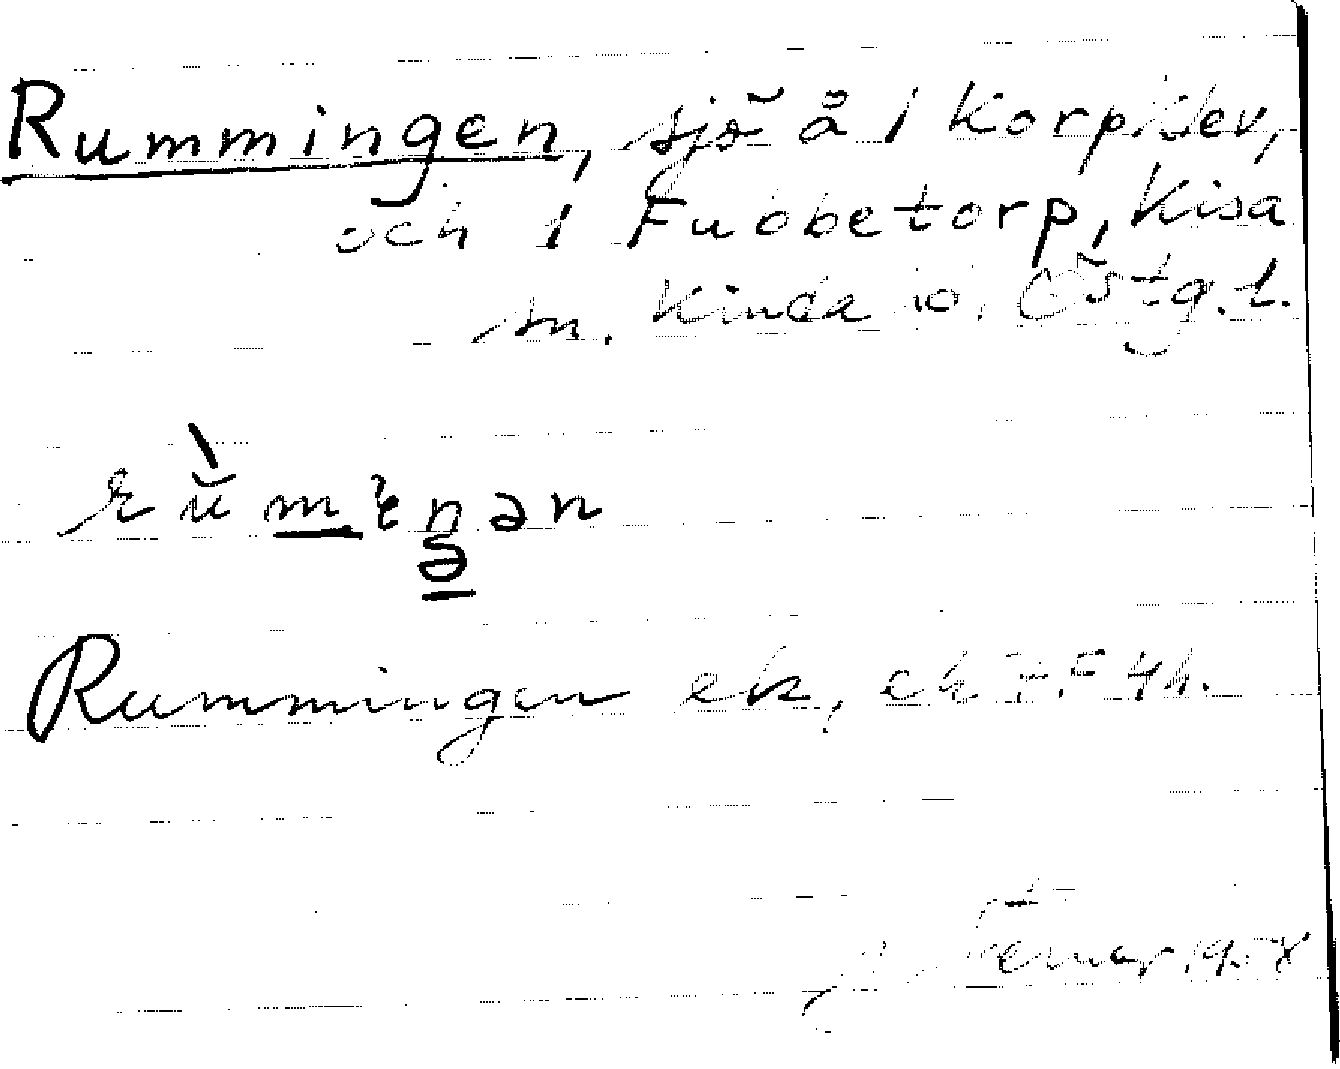 Rummingen, sjö å i Korpklev,
och i Fubbetorp, Kisa
sn. Kinda hd. Östg.l.
rùmiŋən
Rummingen ek,
1958